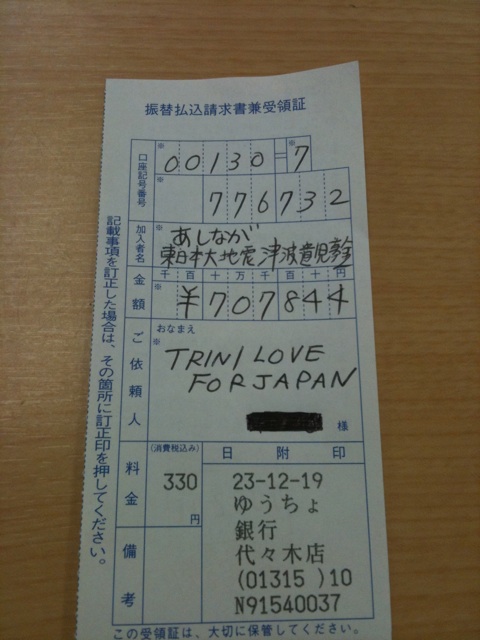 振替払込請求書兼受領証
口座記号番号
※
00130=7
※
※
776732
加入者名
※
あしなが
東日本大地震津波遺児募金
金額
千百十万千百十円
※
¥707844
ご依頼人
おなまえ
※
TRINI LOVE
FOR JAPAN
様
料金
(消費税込み)
330
円
日附印
23-12-19
ゆうちょ
銀行
代々木店
(01315 )10
N91540037
備考
記載事項を訂正した場合は、その箇所に訂正印を押してください。
この受領証は、大切に保管してください。